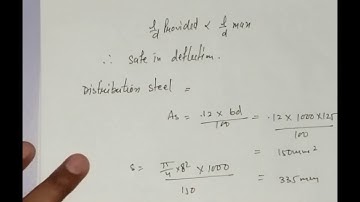 l/d Provided < l/d max
∴ safe in deflection.
Distribution steel =
As = .12 × bd / 100 = .12 × 1000 × 125 / 100
= 150mm²
S = π/4 × 8² × 1000 / 150 = 335 mm